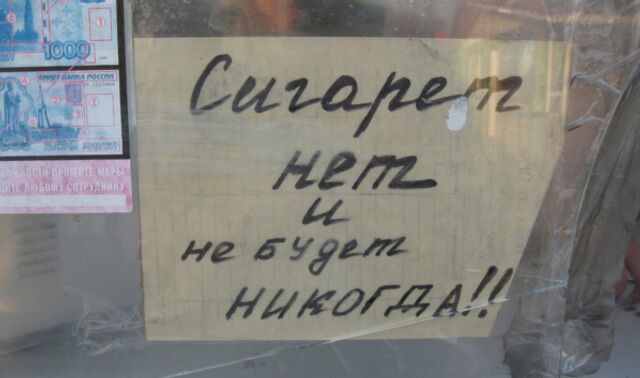 1000
БИЛЕТ БАНКА РОССИИ
ПРИМИТЕ МЕРЫ
ЛЮБОМУ СОТРУДНИКУ
Сигарет
нет
и
не будет
НИКОГДА!!